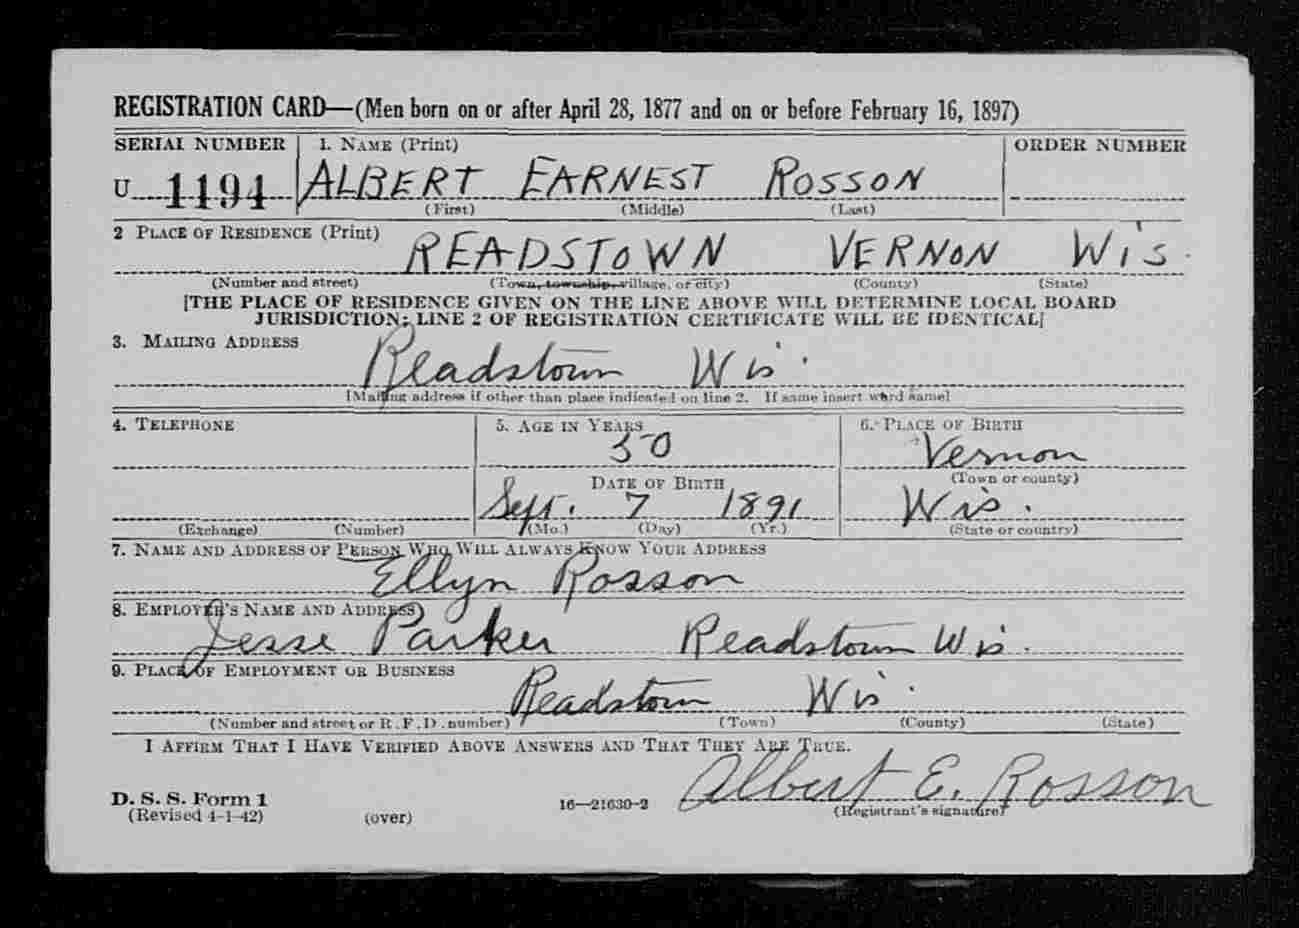 REGISTRATION CARD—(Men born on or after April 28, 1877 and on or before February 16, 1897)
SERIAL NUMBER 1. NAME (Print) ORDER NUMBER
U 1194 ALBERT EARNEST ROSSON
(First) (Middle) (Last)
2 PLACE OF RESIDENCE (Print) READSTOWN VERNON WIS.
(Number and street) (Town, township, village, or city) (County) (State)
[THE PLACE OF RESIDENCE GIVEN ON THE LINE ABOVE WILL DETERMINE LOCAL BOARD
JURISDICTION; LINE 2 OF REGISTRATION CERTIFICATE WILL BE IDENTICAL]
3. MAILING ADDRESS
Readstown Wis.
[Mailing address if other than place indicated on line 2. If same insert word same]
4. TELEPHONE 5. AGE IN YEARS 6. PLACE OF BIRTH
50 Vernon
DATE OF BIRTH (Town or county)
Sept. 7 1891 Wis.
(Exchange) (Number) (Mo.) (Day) (Yr.) (State or country)
7. NAME AND ADDRESS OF PERSON WHO WILL ALWAYS KNOW YOUR ADDRESS
Ellyn Rosson
8. EMPLOYER'S NAME AND ADDRESS
Jesse Parker Readstown Wis.
9. PLACE OF EMPLOYMENT OR BUSINESS
Readstown Wis.
(Number and street or R. F. D. number) (Town) (County) (State)
I AFFIRM THAT I HAVE VERIFIED ABOVE ANSWERS AND THAT THEY ARE TRUE.
Albert E. Rosson
D. S. S. Form 1 16—21630-2 (Registrant's signature)
(Revised 4-1-42) (over)